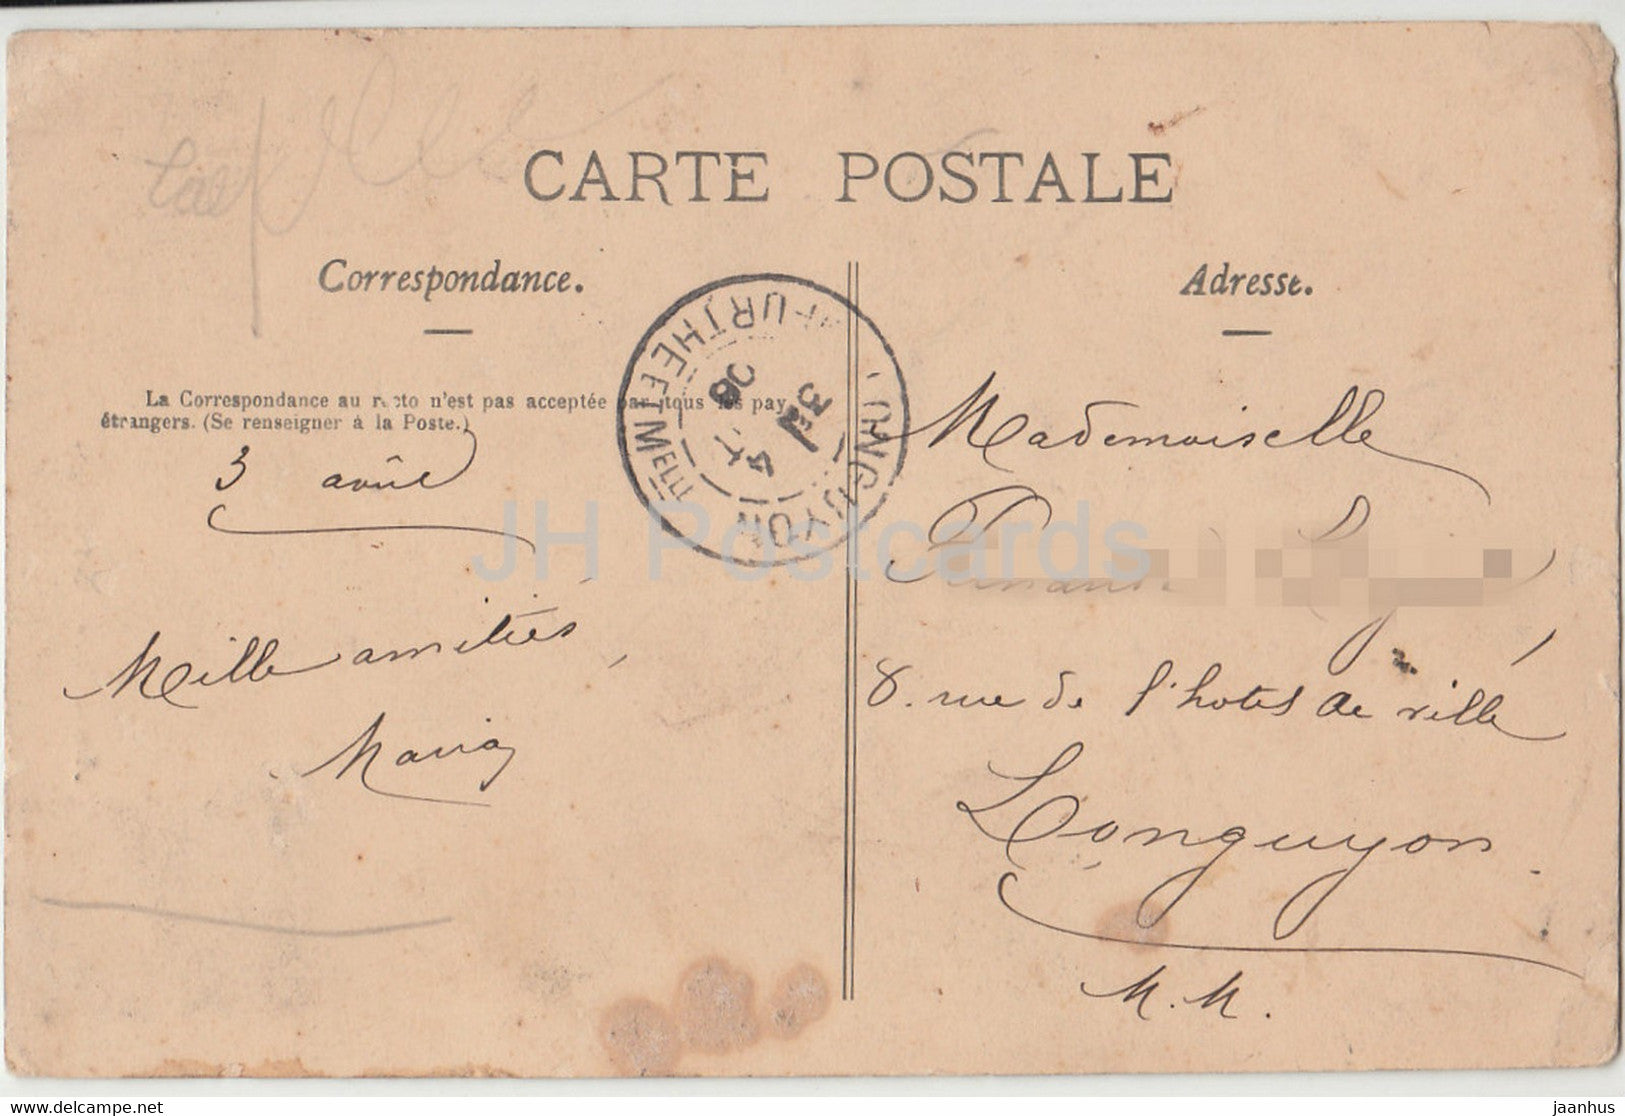 CARTE POSTALE
Correspondance.
La Correspondance au recto n'est pas acceptée par tous les pays
étrangers. (Se renseigner à la Poste.)
3 août
Mille amitiés
Maria
LONGUYON
MEURTHE ET MELLE
4 - 8
08
Adresse.
Mademoiselle
8. rue de l'hotel de ville
Longuyon
M. M.
JH Postcards
delcampe.net
jaanhus